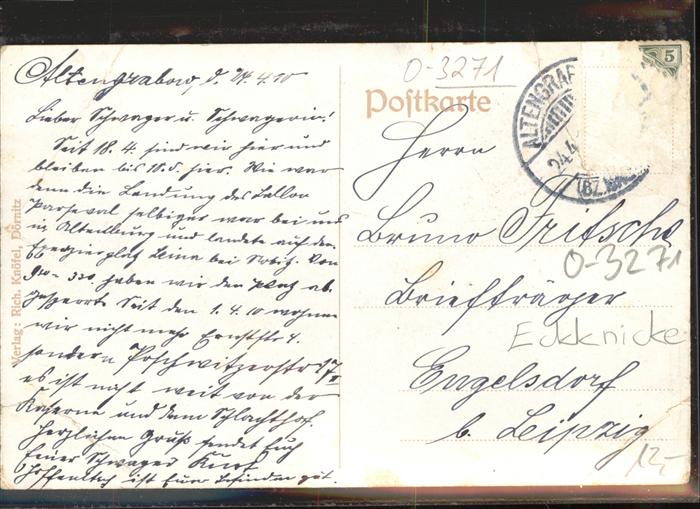 Altengrabow, d. 24.4.10
Lieber Schwager u. Schwägerin!
Seit 18.4. sind wir hier und
bleiben bis 10.5. hier. Wie war
denn die Landung des Ballon
Parseval selbiger war bei uns
in Altenburg und landete auf den
Exerzierplatz Leina bei Von
9 00 - 3 30 haben wir den Platz ab
gesperrt Seit den 1.4.10 wohnen
wir nicht mehr Ernststr 4.
sondern Poschwitzerstr 17 II
es ist nicht weit von der
Kaserne und dem Schlachthof.
Herzlichen Gruß sendet Euch
Euer Schwager Kurt
Hoffentlich ist Euer Befinden gut.
Verlag: Rich. Knöfel, Dörnitz
O-3271
Postkarte
ALTENGRAB
24.4
(BZ.
5
Herrn
Bruno Fritzsche
O-3271
Briefträger
Eckknicke
Engelsdorf
b. Leipzig
12,-